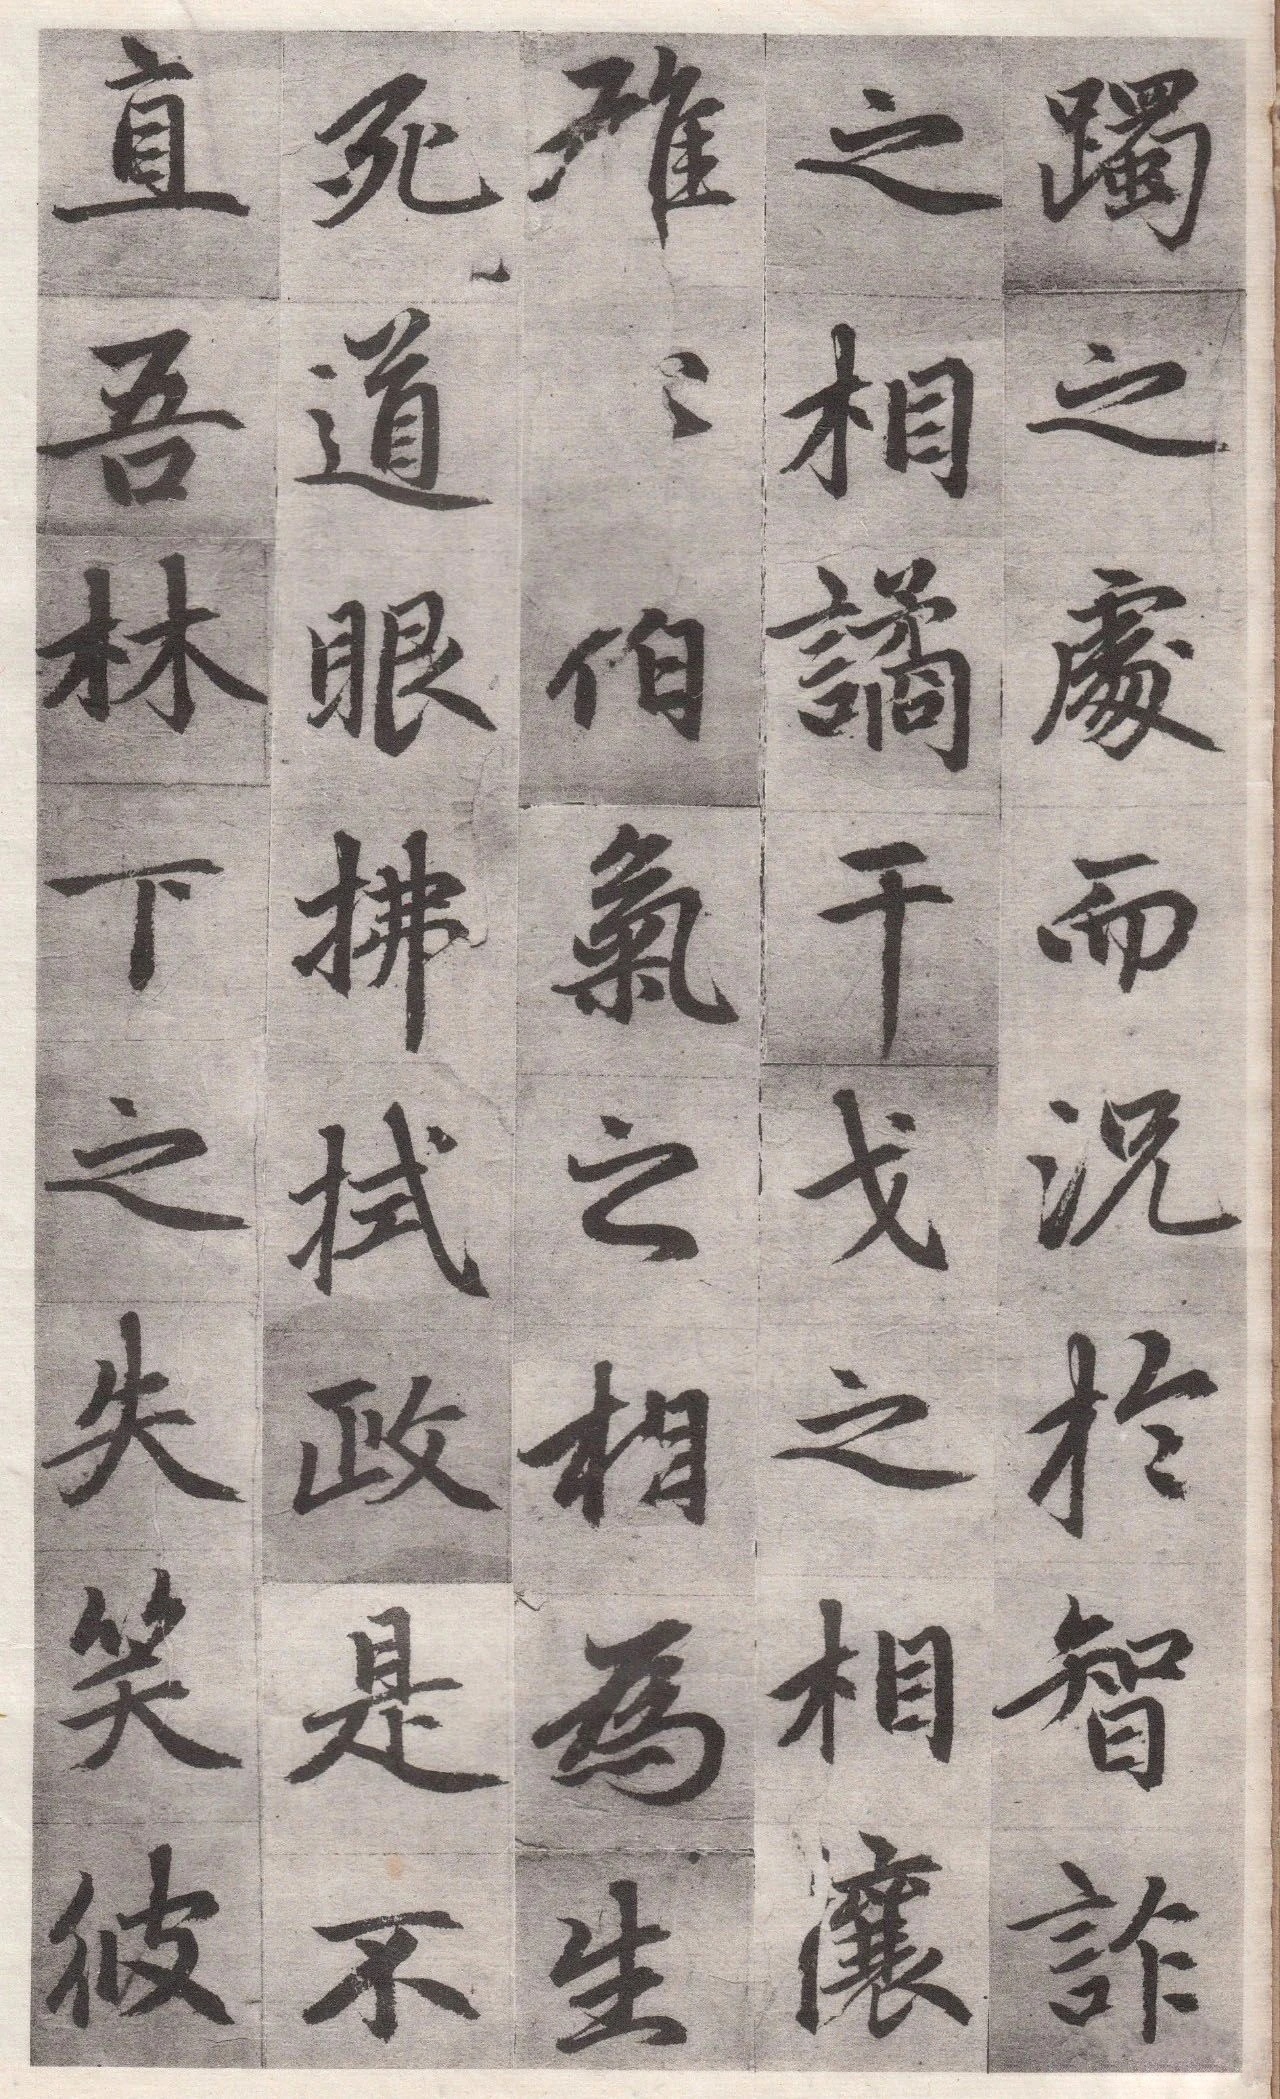 躅之處而況於智詐
之相譎干戈之相攘
雄〻伯氣之相為生
死道眼拂拭政是不
直吾林下之失笑彼